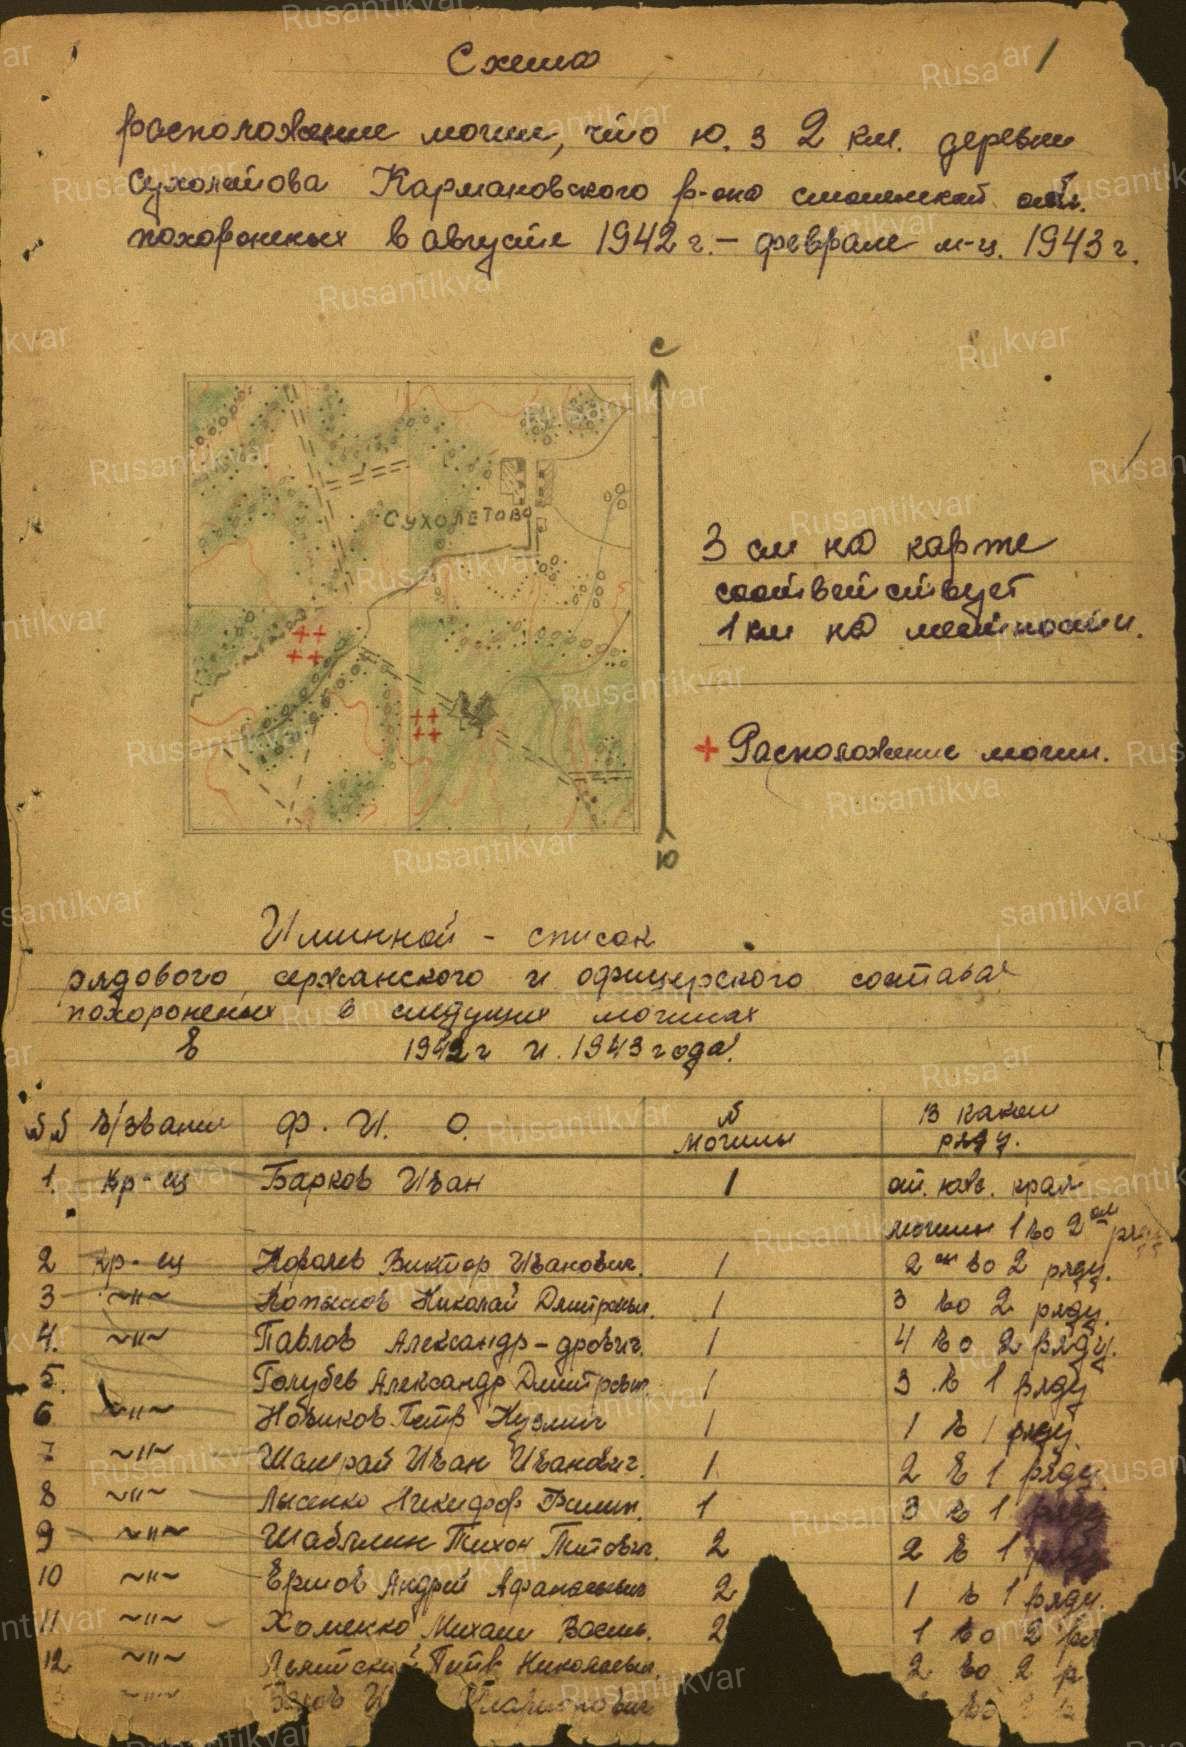 Схема
1
расположение могил, что ю. з 2 км. деревни
Сухолетова Кармановского р-она смоленской обл.
похороненых в августе 1942 г. – феврале м-ц. 1943 г.
С
СУХОЛЕТОВО
3 см на карте
соответствует
1 км на местности.
+ Расположение могил.
Ю
Иминной - список
рядового, сержанского и офицерского состава
похороненых в следующих могилах
в 1942 г и 1943 года.
№№ в/звание Ф. И. О. № могилы В каком ряду.
1. Кр-ец Барков Иван 1 от. юв. края
могилы 1 во 2 ом ряду
2 Кр-ец Виктор Иванович. 1 2 ой во 2 ряду.
3 ~"~ Николай Дмитриевич. 1 3 во 2 ряду.
4. ~"~ Павлов Александр-дрович. 1 4 во 2 ряду.
5. Голубев Александр Дмитревич. 1 3 в 1 ряду
6 ~"~ Новиков Петр Кузмич 1 1 в 1 ряду.
7 ~"~ Шамрай Иван Иванович. 1 2 в 1 ряду.
8 ~"~ Лысенко Никифор Филип. 1 3 в 1 ряду
9 ~"~ Шаблалин Тихон Титович. 2 2 в 1 ряду
10 ~"~ Ершов Андрей Афанасьевич 2 1 в 1 ряду.
11 ~"~ Хоменко Михаил Василь. 2 1 во 2 ря
12 ~"~ Петр Николаевич. 2 во 2 р
~"~ Иларионович во
Rusantikvar